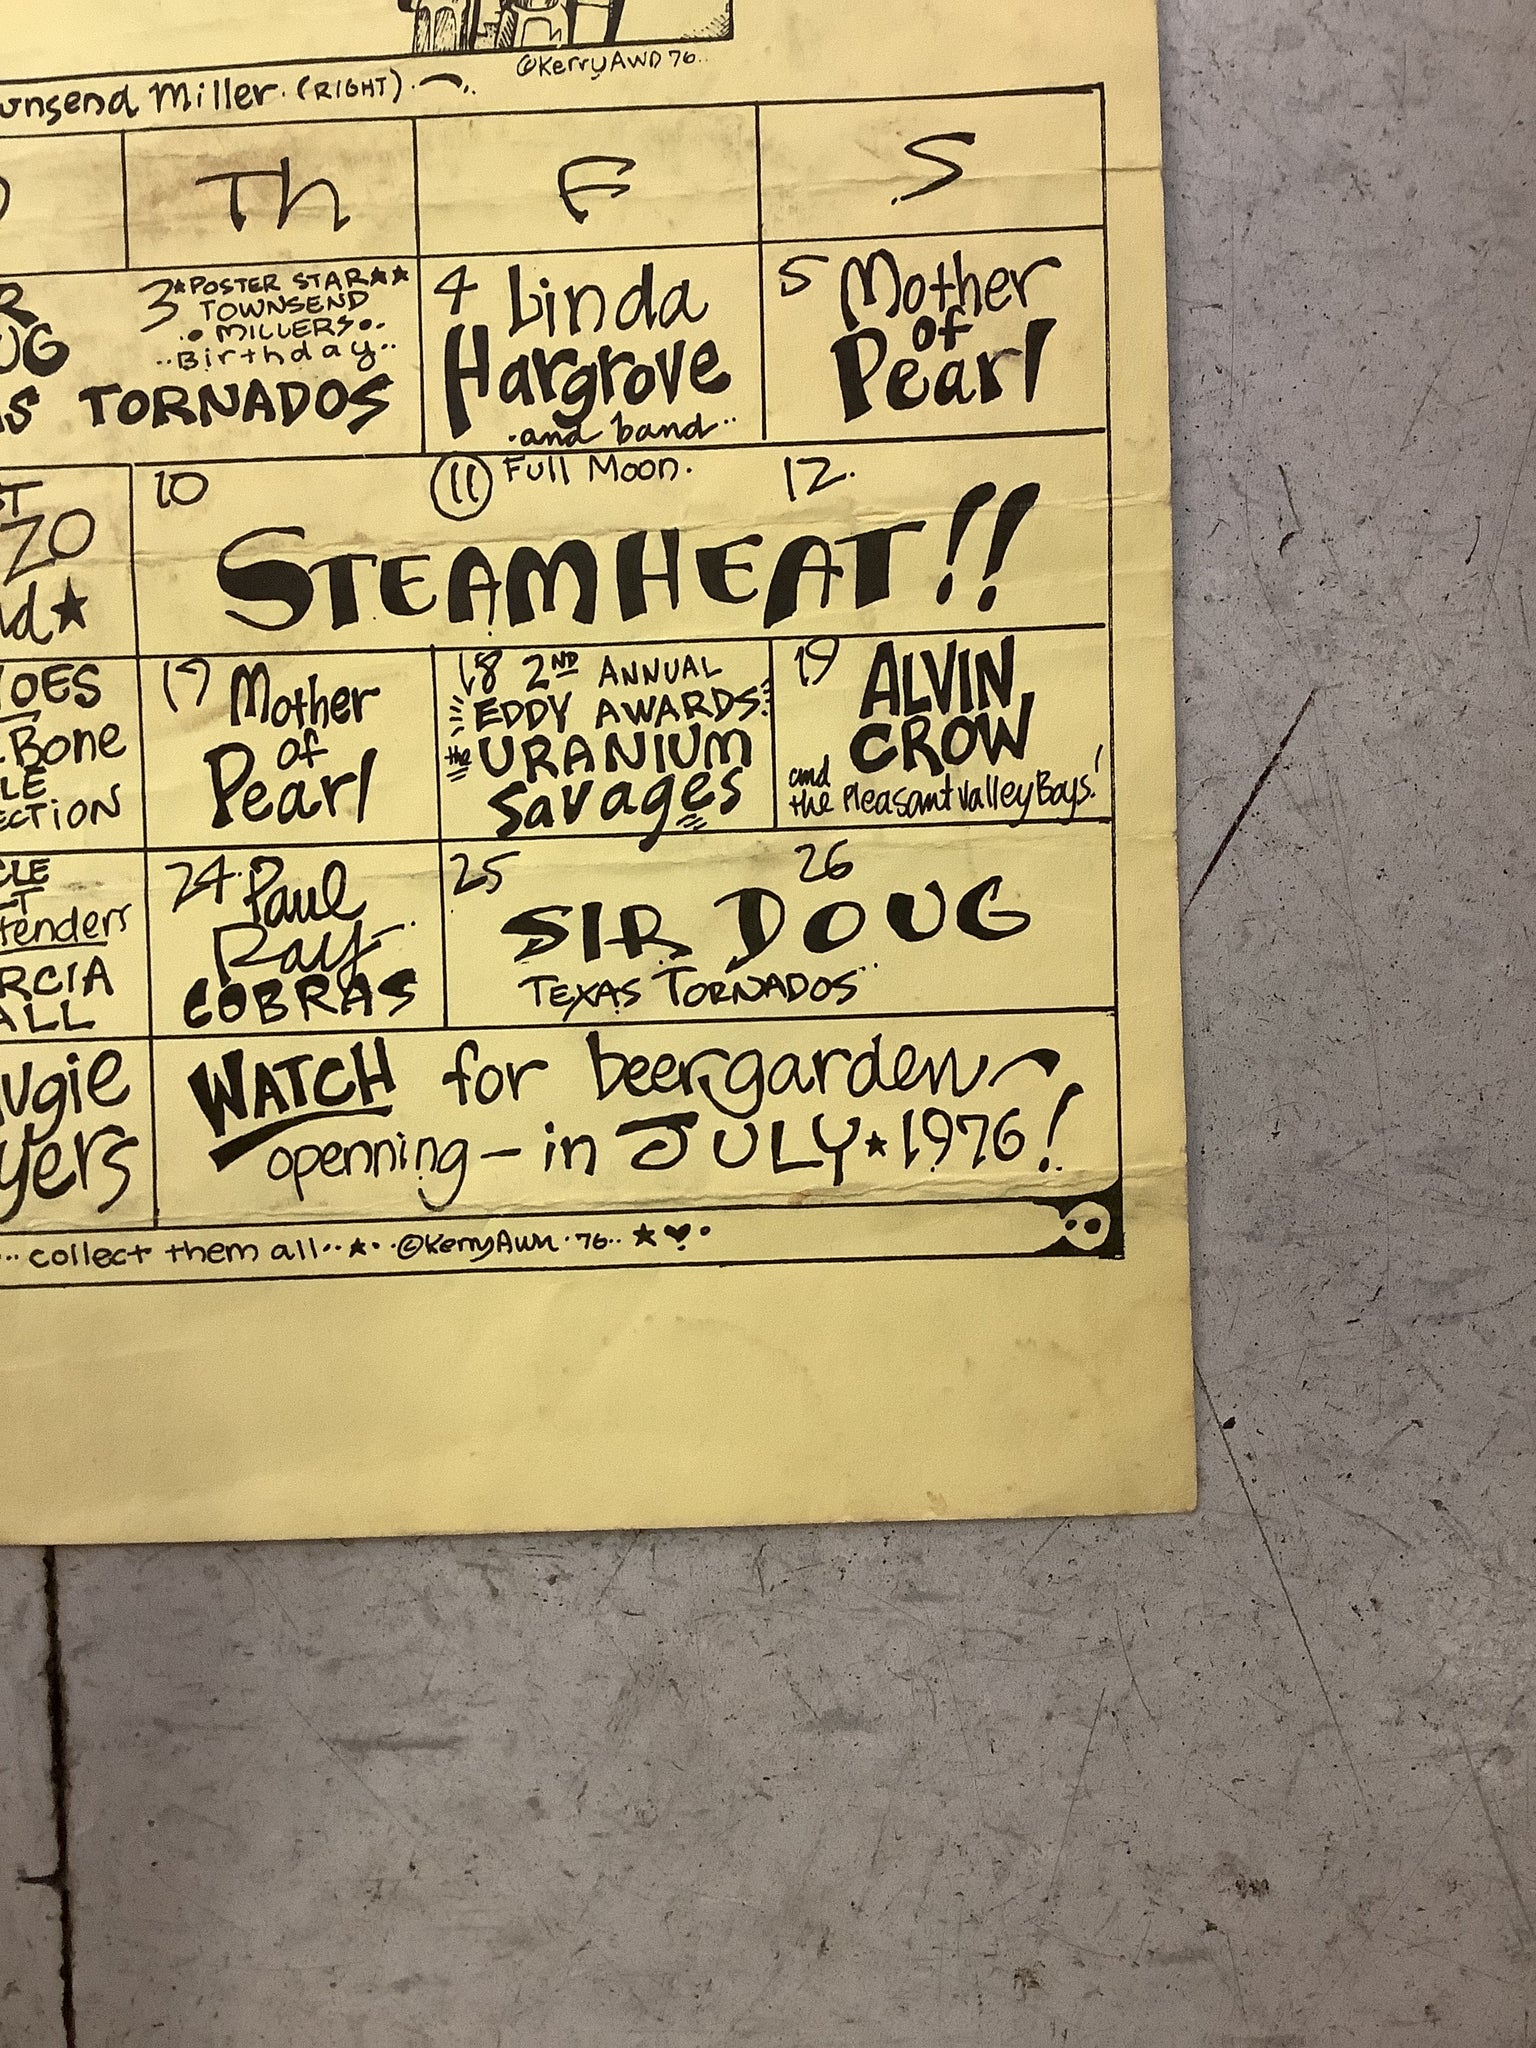 ©KerryAWN 76..
Miller. (RIGHT)
Th F S
3 *POSTER STAR★★
TOWNSEND
MILLERS
..Birthday..
TORNADOS
4 Linda
Hargrove
.and band..
5 Mother
of
Pearl
10 11 Full Moon. 12.
STEAMHEAT!!
17 Mother
of
Pearl
18 2ND ANNUAL
EDDY AWARDS
the URANIUM
Savages
19 ALVIN
CROW
and
the Pleasant Valley Boys!
Bone
24. Paul
Ray
COBRAS
25 26
SIR DOUG
TEXAS TORNADOS..
WATCH for beergarden
openning - in JULY ★ 1976!
.. collect them all..★. ©KerryAwn.76.. ★♥.